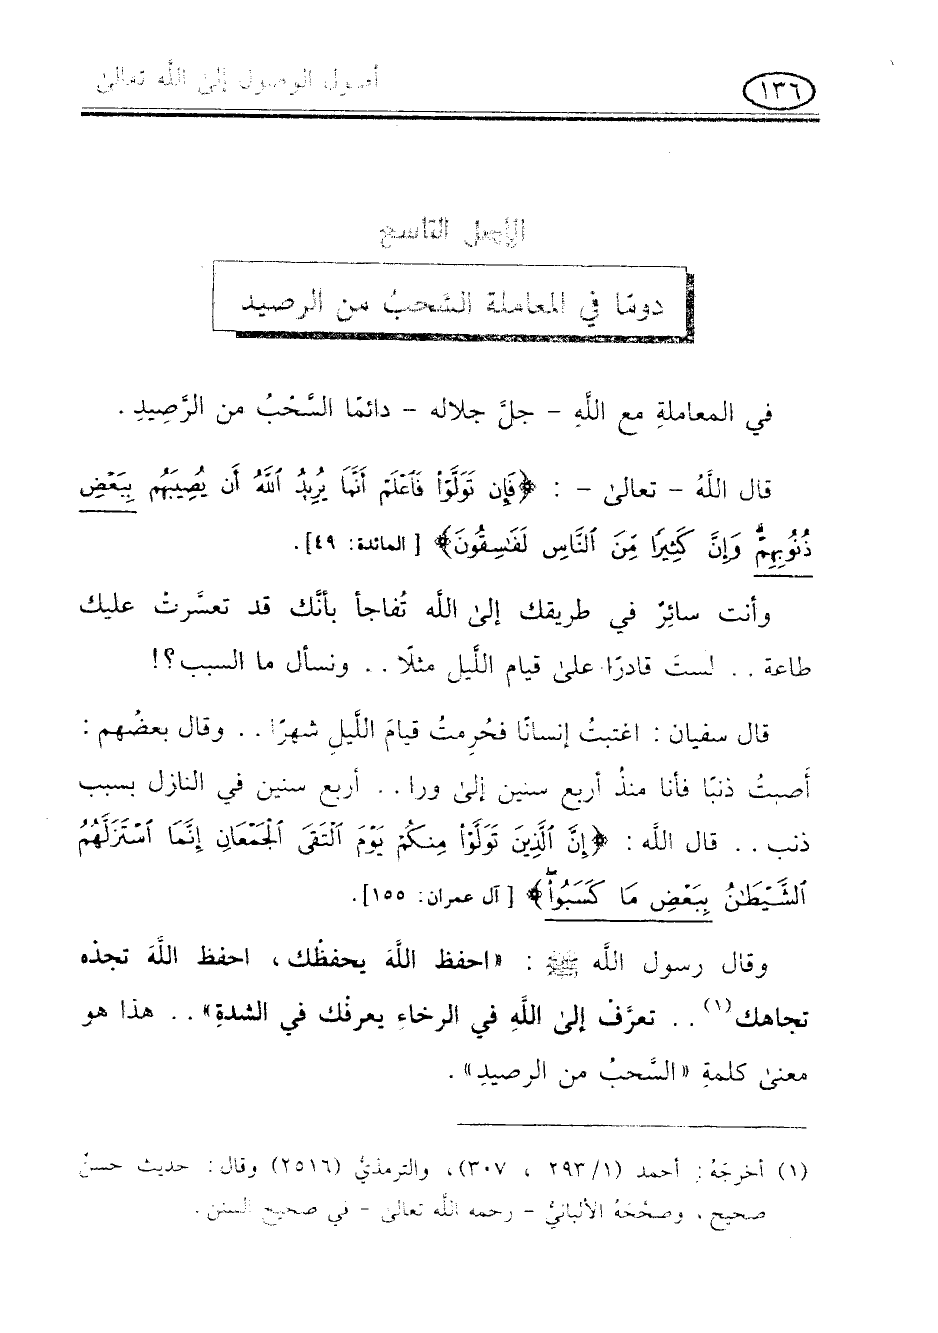 ١٣٦
أصول الوصول إلى الله تعالى
الأصل التاسع
دومًا في المعاملة السَّحبُ من الرصيد
في المعاملةِ مع اللَّهِ - جلَّ جلاله - دائمًا السَّحْبُ من الرَّصِيدِ .
قال اللَّهُ - تعالىٰ - : ﴿فَإِن تَوَلَّوْاْ فَٱعْلَمْ أَنَّمَا يُرِيدُ ٱللَّهُ أَن يُصِيبَهُم بِبَعْضِ
ذُنُوبِهِمْۗ وَإِنَّ كَثِيرًا مِّنَ ٱلنَّاسِ لَفَاسِقُونَ﴾ [ المائدة: ٤٩].
وأنت سائِرٌ في طريقك إلىٰ اللَّه تُفاجأ بأنَّك قد تعسَّرتْ عليك
طاعة . . لستَ قادرًا علىٰ قيام اللَّيل مثلًا . . ونسأل ما السبب؟!
قال سفيان : اغتبتُ إنسانًا فحُرِمتُ قيامَ اللَّيلِ شهرًا . . وقال بعضُهم :
أصبتُ ذنبًا فأنا منذُ أربع سنين إلىٰ ورا . . أربع سنين في النازل بسبب
ذنب . . قال اللَّه : ﴿إِنَّ ٱلَّذِينَ تَوَلَّوْاْ مِنكُمْ يَوْمَ ٱلْتَقَى ٱلْجَمْعَانِ إِنَّمَا ٱسْتَزَلَّهُمُ
ٱلشَّيْطَٰنُ بِبَعْضِ مَا كَسَبُواْۖ﴾ [ آل عمران: ١٥٥].
وقال رسول اللَّه ﷺ : «احفظ اللَّهَ يحفظْك ، احفظ اللَّهَ تجدْه
تجاهك(١) . . تعرَّفْ إلىٰ اللَّهِ في الرخاءِ يعرفْك في الشدةِ» . . هذا هو
معنىٰ كلمةِ «السَّحبُ من الرصيدِ» .
(١) أخرجَهُ : أحمد (٢٩٣/١ ، ٣٠٧)، والترمذيُّ (٢٥١٦) وقال : حديث حسنٌ
صحيح ، وصحَّحَهُ الألبانيُّ - رحمه اللَّه تعالىٰ - في صحيح السنن .